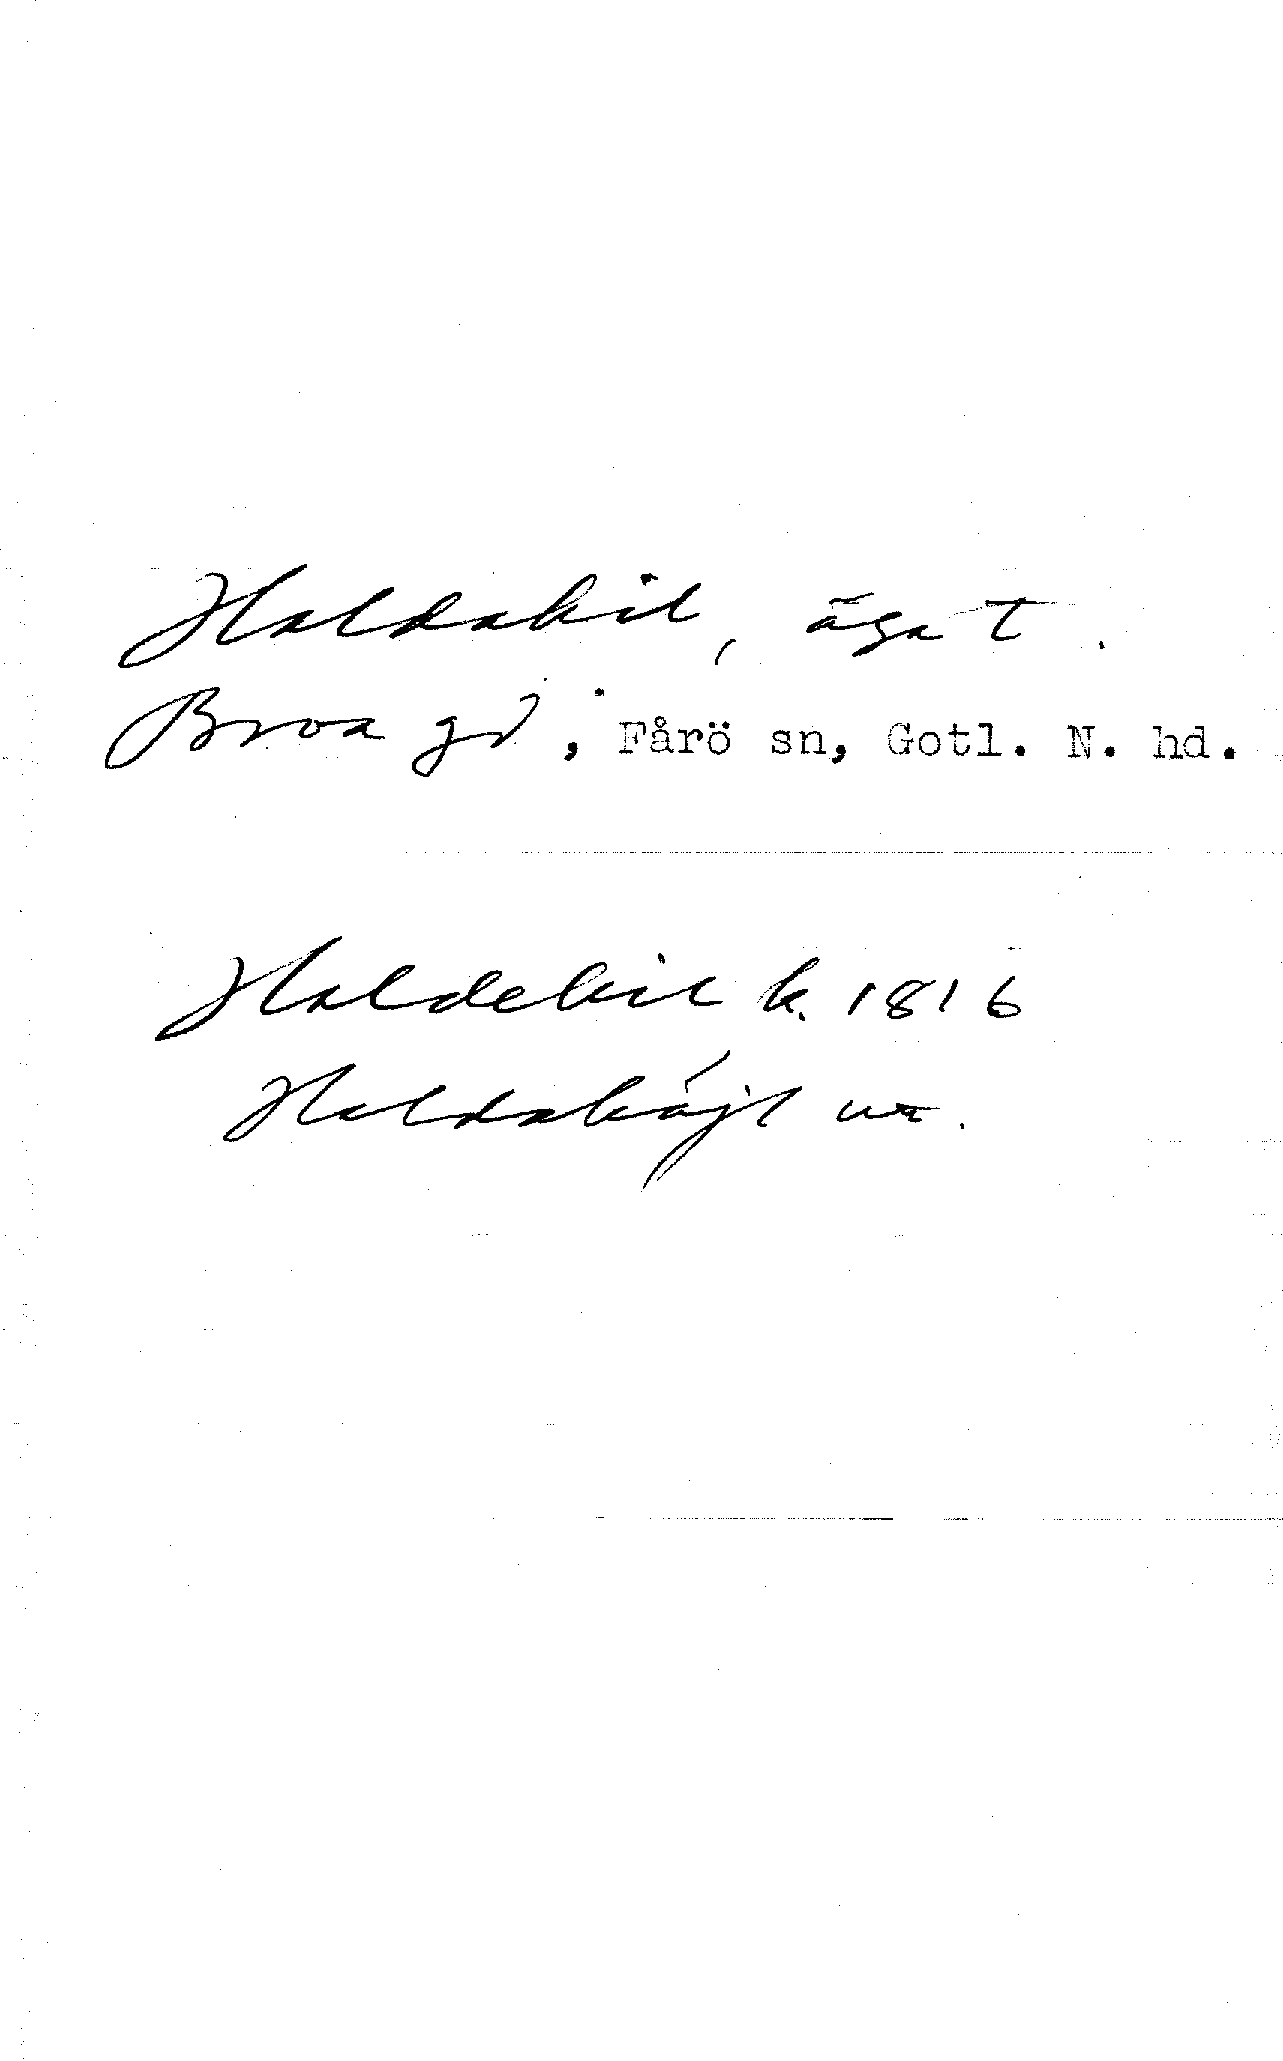 Haldakil, ägat.
Broa gd, Fårö sn, Gotl. N. hd.
Haldekil k. 1816
Haldakäjl